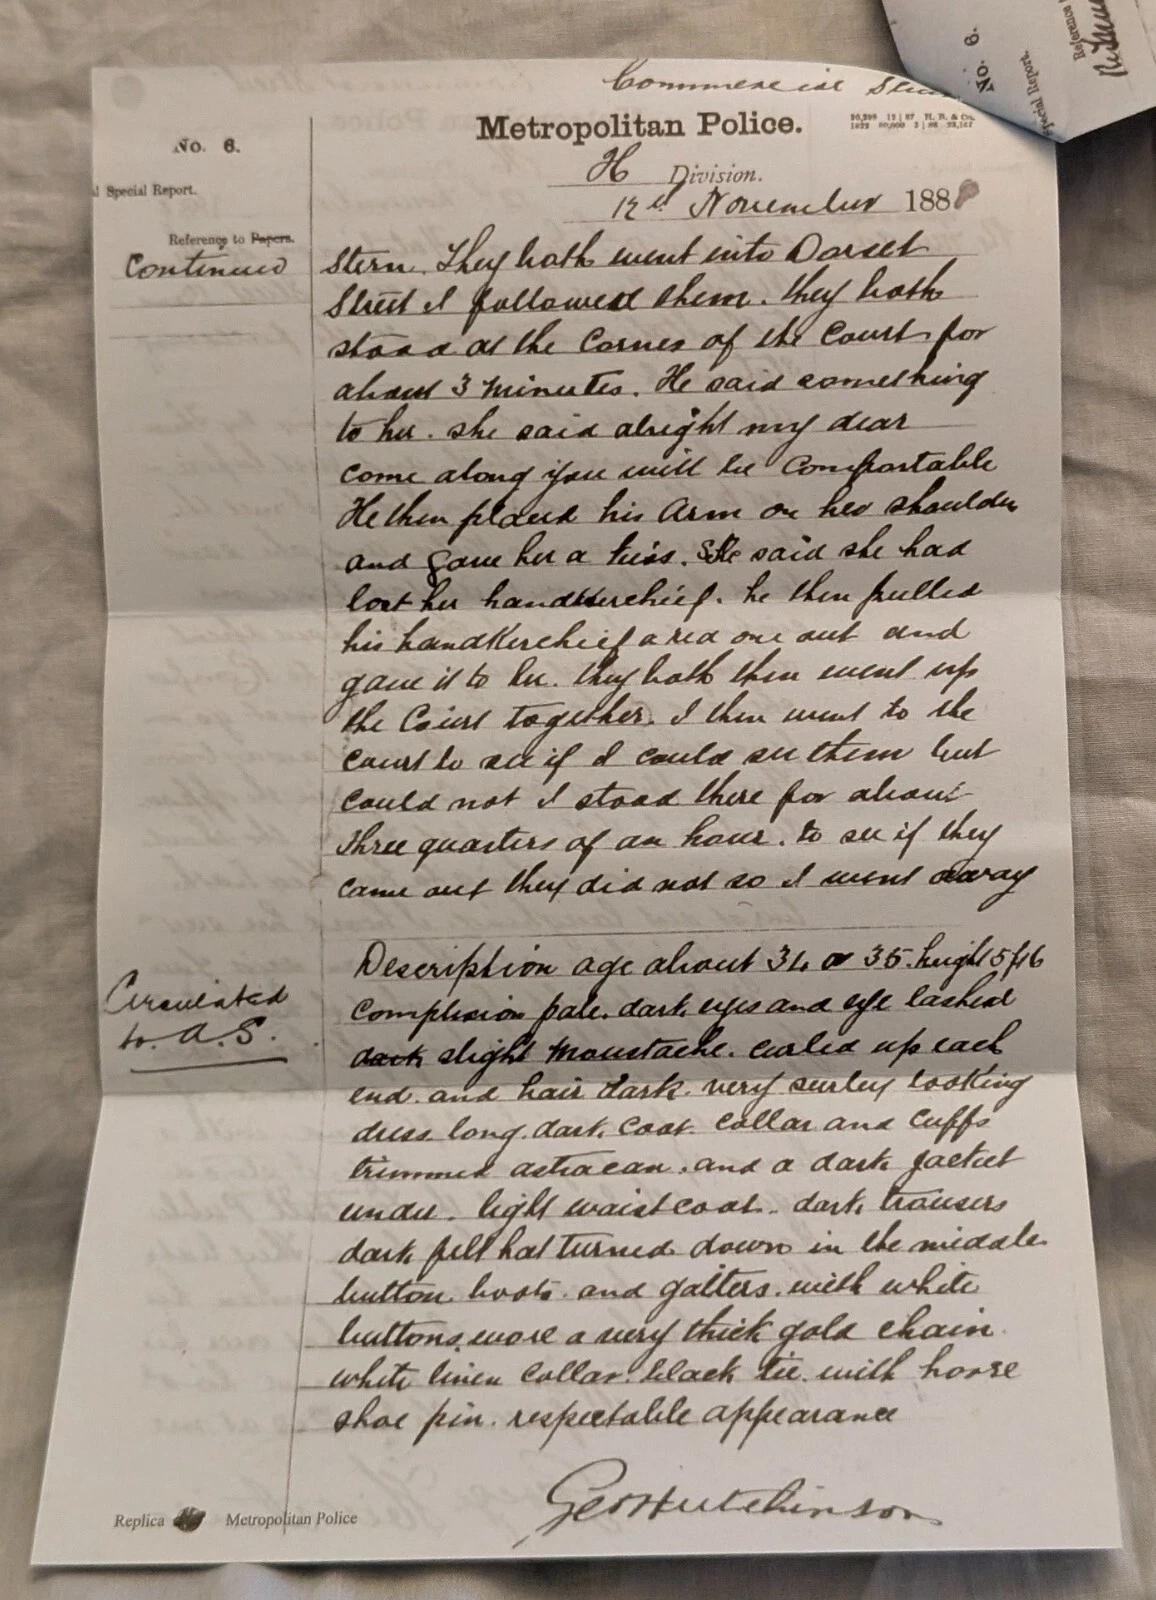 Commercial Street
Metropolitan Police.
No. 6.
H Division.
Special Report.
12th November 188
Reference to Papers.
Continued
Stern. They both went into Dorset
Street I followed them. they both
stood at the Corner of the Court for
about 3 minutes. He said something
to her. she said alright my dear
come along you will be Comfortable
He then placed his Arm on her shoulder
and gave her a kiss. She said she had
lost her handkerchief. he then pulled
his handkerchief a red one out and
gave it to her. they both then went up
the Court together. I then went to the
Court to see if I could see them but
could not I stood there for about
three quarters of an hour. to see if they
came out they did not so I went away
Description age about 34 or 35. height 5ft6
Complexion pale. dark eyes and eye lashes
dark slight moustache. curled up each
end. and hair dark. very surley looking
dress long. dark. coat. collar and cuffs
trimmed astracan. and a dark jacket
under. light waistcoat. dark trousers
dark felt hat turned down in the middle.
button boots. and gaiters. with white
buttons. wore a very thick gold chain
white linen collar. black tie. with horse
shoe pin. respectable appearance
Circulated
to. A.S.
Geo Hutchinson
Replica Metropolitan Police
No. 6.
Special Report.
Reference